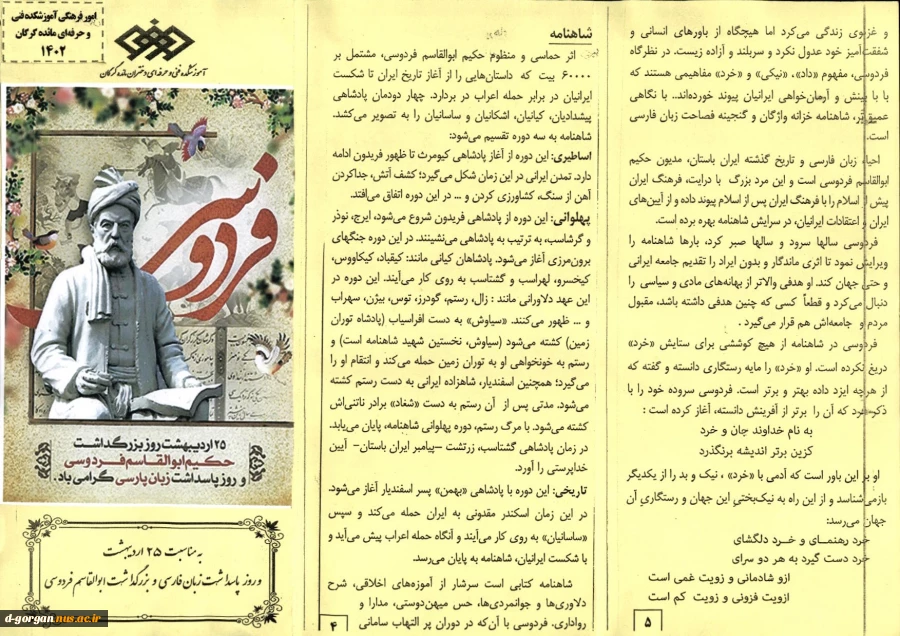 امور فرهنگی آموزشکده فنی
و حرفه‌ای مائده گرگان
۱۴۰۲
آموزشکده فنی و حرفه‌ای دختران مائده گرگان
فردوسی
۲۵ اردیبهشت روز بزرگداشت
حکیم ابوالقاسم فردوسی
و روز پاسداشت زبان پارسی گرامی باد.
به مناسبت ۲۵ اردیبهشت
و روز پاسداشت زبان فارسی و بزرگداشت ابوالقاسم فردوسی
d-gorgan.nus.ac.ir
شاهنامه
اثر حماسی و منظوم حکیم ابوالقاسم فردوسی، مشتمل بر
۶۰۰۰۰ بیت که داستان‌هایی را از آغاز تاریخ ایران تا شکست
ایرانیان در برابر حمله اعراب در بردارد. چهار دودمان پادشاهی
پیشدادیان، کیانیان، اشکانیان و ساسانیان را به تصویر می‌کشد.
شاهنامه به سه دوره تقسیم می‌شود:
اساطیری: این دوره از آغاز پادشاهی کیومرث تا ظهور فریدون ادامه
دارد. تمدن ایرانی در این زمان شکل می‌گیرد؛ کشف آتش، جداکردن
آهن از سنگ، کشاورزی کردن و ... در این دوره اتفاق می‌افتد.
پهلوانی: این دوره از پادشاهی فریدون شروع می‌شود، ایرج، نوذر
و گرشاسب، به ترتیب به پادشاهی می‌نشینند. در این دوره جنگهای
برون‌مرزی آغاز می‌شود. پادشاهان کیانی مانند: کیقباد، کیکاووس،
کیخسرو، لهراسب و گشتاسب به روی کار می‌آیند. این دوره در
این عهد دلاورانی مانند : زال، رستم، گودرز، توس، بیژن، سهراب
و ... ظهور می‌کنند. «سیاوش» به دست افراسیاب (پادشاه توران
زمین) کشته می‌شود (سیاوش، نخستین شهید شاهنامه است) و
رستم به خونخواهی او به توران زمین حمله می‌کند و انتقام او را
می‌گیرد؛ همچنین اسفندیار، شاهزاده ایرانی به دست رستم کشته
می‌شود. مدتی پس از آن رستم به دست «شغاد» برادر ناتنی‌اش
کشته می‌شود. با مرگ رستم، دوره پهلوانی شاهنامه، پایان می‌یابد.
در زمان پادشاهی گشتاسب، زرتشت –پیامبر ایران باستان- آیین
خداپرستی را آورد.
تاریخی: این دوره با پادشاهی «بهمن» پسر اسفندیار آغاز می‌شود.
در این زمان اسکندر مقدونی به ایران حمله می‌کند و سپس
«ساسانیان» به روی کار می‌آیند و آنگاه حمله اعراب پیش می‌آید و
با شکست ایرانیان، شاهنامه به پایان می‌رسد.
شاهنامه کتابی است سرشار از آموزه‌های اخلاقی، شرح
دلاوری‌ها و جوانمردی‌ها، حس میهن‌دوستی، مدارا و
رواداری. فردوسی با آن‌که در دوران پر التهاب سامانی
۴
و غزنوی زندگی می‌کرد اما هیچگاه از باورهای انسانی و
شفقت‌آمیز خود عدول نکرد و سربلند و آزاده زیست. در نظرگاه
فردوسی، مفهوم «داد»، «نیکی» و «خرد» مفاهیمی هستند که
با بینش و آرمان‌خواهی ایرانیان پیوند خورده‌اند. با نگاهی
عمیق‌تر، شاهنامه خزانه واژگان و گنجینه فصاحت زبان فارسی
است.
احیاء زبان فارسی و تاریخ گذشته ایران باستان، مدیون حکیم
ابوالقاسم فردوسی است و این مرد بزرگ با درایت، فرهنگ ایران
پیش از اسلام را با فرهنگ ایران پس از اسلام پیوند داده و از آیین‌های
ایران و اعتقادات ایرانیان، در سرایش شاهنامه بهره برده است.
فردوسی سالها سرود و سالها صبر کرد، بارها شاهنامه را
ویرایش نمود تا اثری ماندگار و بدون ایراد را تقدیم جامعه ایرانی
و حتی جهان کند. او هدفی والاتر از بهانه‌های مادی و سیاسی را
دنبال می‌کرد و قطعاً کسی که چنین هدفی داشته باشد، مقبول
مردم و جامعه‌اش هم قرار می‌گیرد .
فردوسی در شاهنامه از هیچ کوششی برای ستایش «خرد»
دریغ نکرده است. او «خرد» را مایه رستگاری دانسته و گفته که
از هرچه ایزد داده بهتر و برتر است. فردوسی سروده خود را با
ذکر خرد که آن را برتر از آفرینش دانسته، آغاز کرده است :
به نام خداوند جان و خرد
کزین برتر اندیشه برنگذرد
او بر این باور است که آدمی با «خرد» ، نیک و بد را از یکدیگر
بازمی‌شناسد و از این راه به نیک‌بختی این جهان و رستگاری آن
جهان می‌رسد:
خرد رهنمای و خرد دلگشای
خرد دست گیرد به هر دو سرای
ازو شادمانی و زویت غمی است
ازویت فزونی و زویت کم است
۵